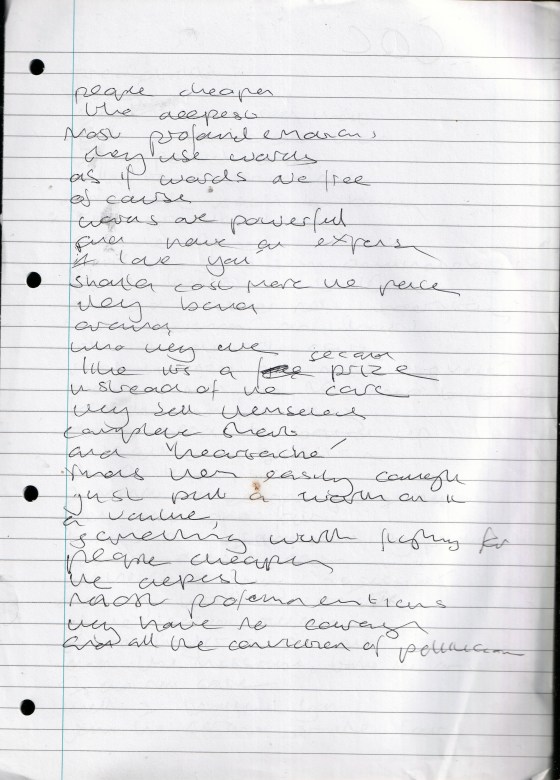 people cheapen
the deepest
most profound emotions
they use words
as if words are free
of course
words are powerful
and have an expense
'I love you'
should cost more the price
they band
around
who they are second
like its a prize
instead of the core
they sell themselves
complete short
and 'heartache'
them easily caught
just put a worth on it
a value,
something worth fighting for
people cheapen
the deepest
most profound emotions
they have no courage
and all the conviction of politician